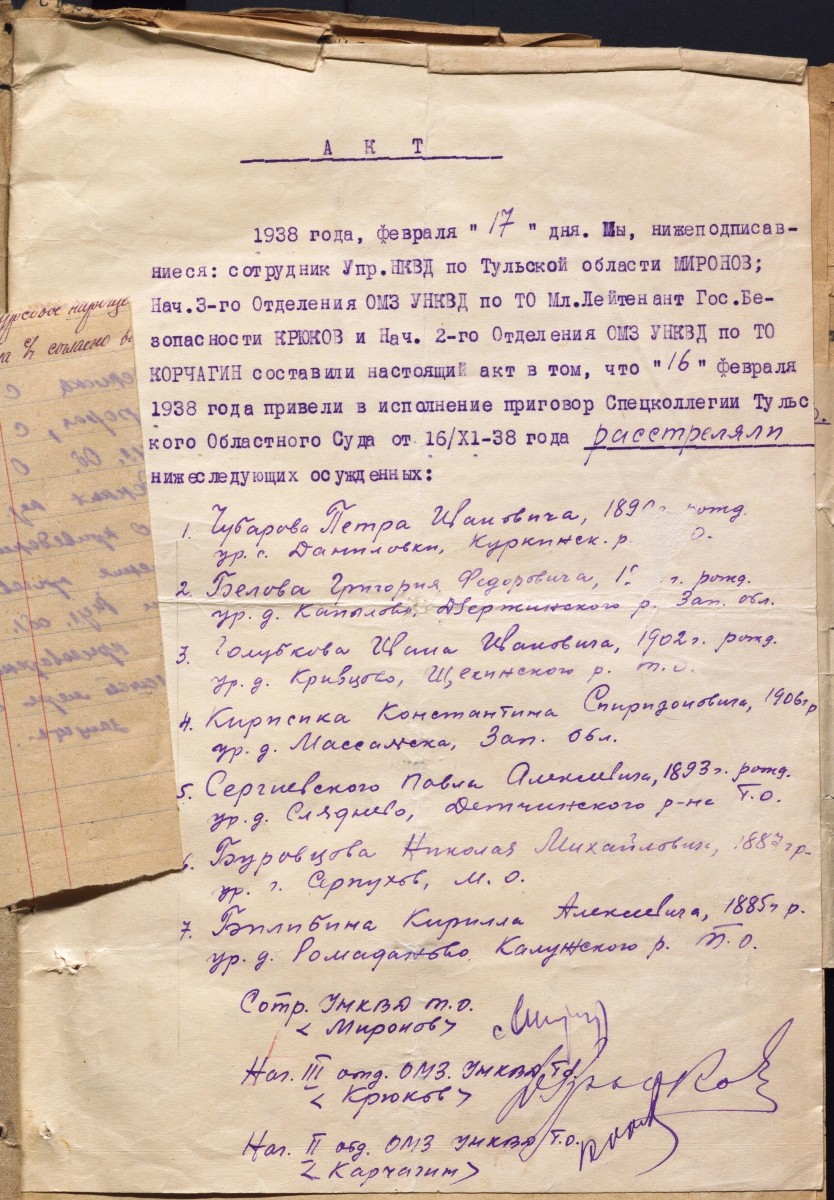 А К Т
1938 года, февраля "17" дня. Мы, нижеподписав-
ниеся: сотрудник Упр.НКВД по Тульской области МИРОНОВ;
Нач.3-го Отделения ОМЗ УНКВД по ТО Мл.Лейтенант Гос.Бе-
зопасности КРЮКОВ и Нач. 2-го Отделения ОМЗ УНКВД по ТО
КОРЧАГИН составили настоящий акт в том, что "16" февраля
1938 года привели в исполнение приговор Спецколлегии Тульс
кого Областного Суда от 16/XI-38 года расстреляли
нижеследующих осужденных:
1. Чубарова Петра Ивановича, рожд.
ур. с. Даниловки, Куркинск. р. О.
2. Белова Григория Федоровича, г. рожд.
ур. д. Капылово, Дзержинского р. Зап. обл.
3. Голубкова Ивана Ивановича, 1902 г. рожд.
ур. д. Кривцово, Щекинского р. Т.О.
4. Кирисика Константина Спиридоновича, 1906 г р
ур. д. Зап. Обл.
5. Сергиевского Павла Алексеевича, 1893 г. рожд.
ур. д. Сляднево, Детчинского р-на Т.О.
6. Буровцова Николая Михайловича, 1887 г р.
ур. г. Серпухов, М.О.
7. Билибина Кирилла Алексеевича, 1885 г р.
ур. д. Ромаданово Калужского р. Т.О.
Сотр. УНКВД Т.О.
<Миронов>
Нач. III отд. ОМЗ. УНКВД Т.О.
<Крюков>
Нач. II отд. ОМЗ УНКВД Т.О.
<Карчагин>